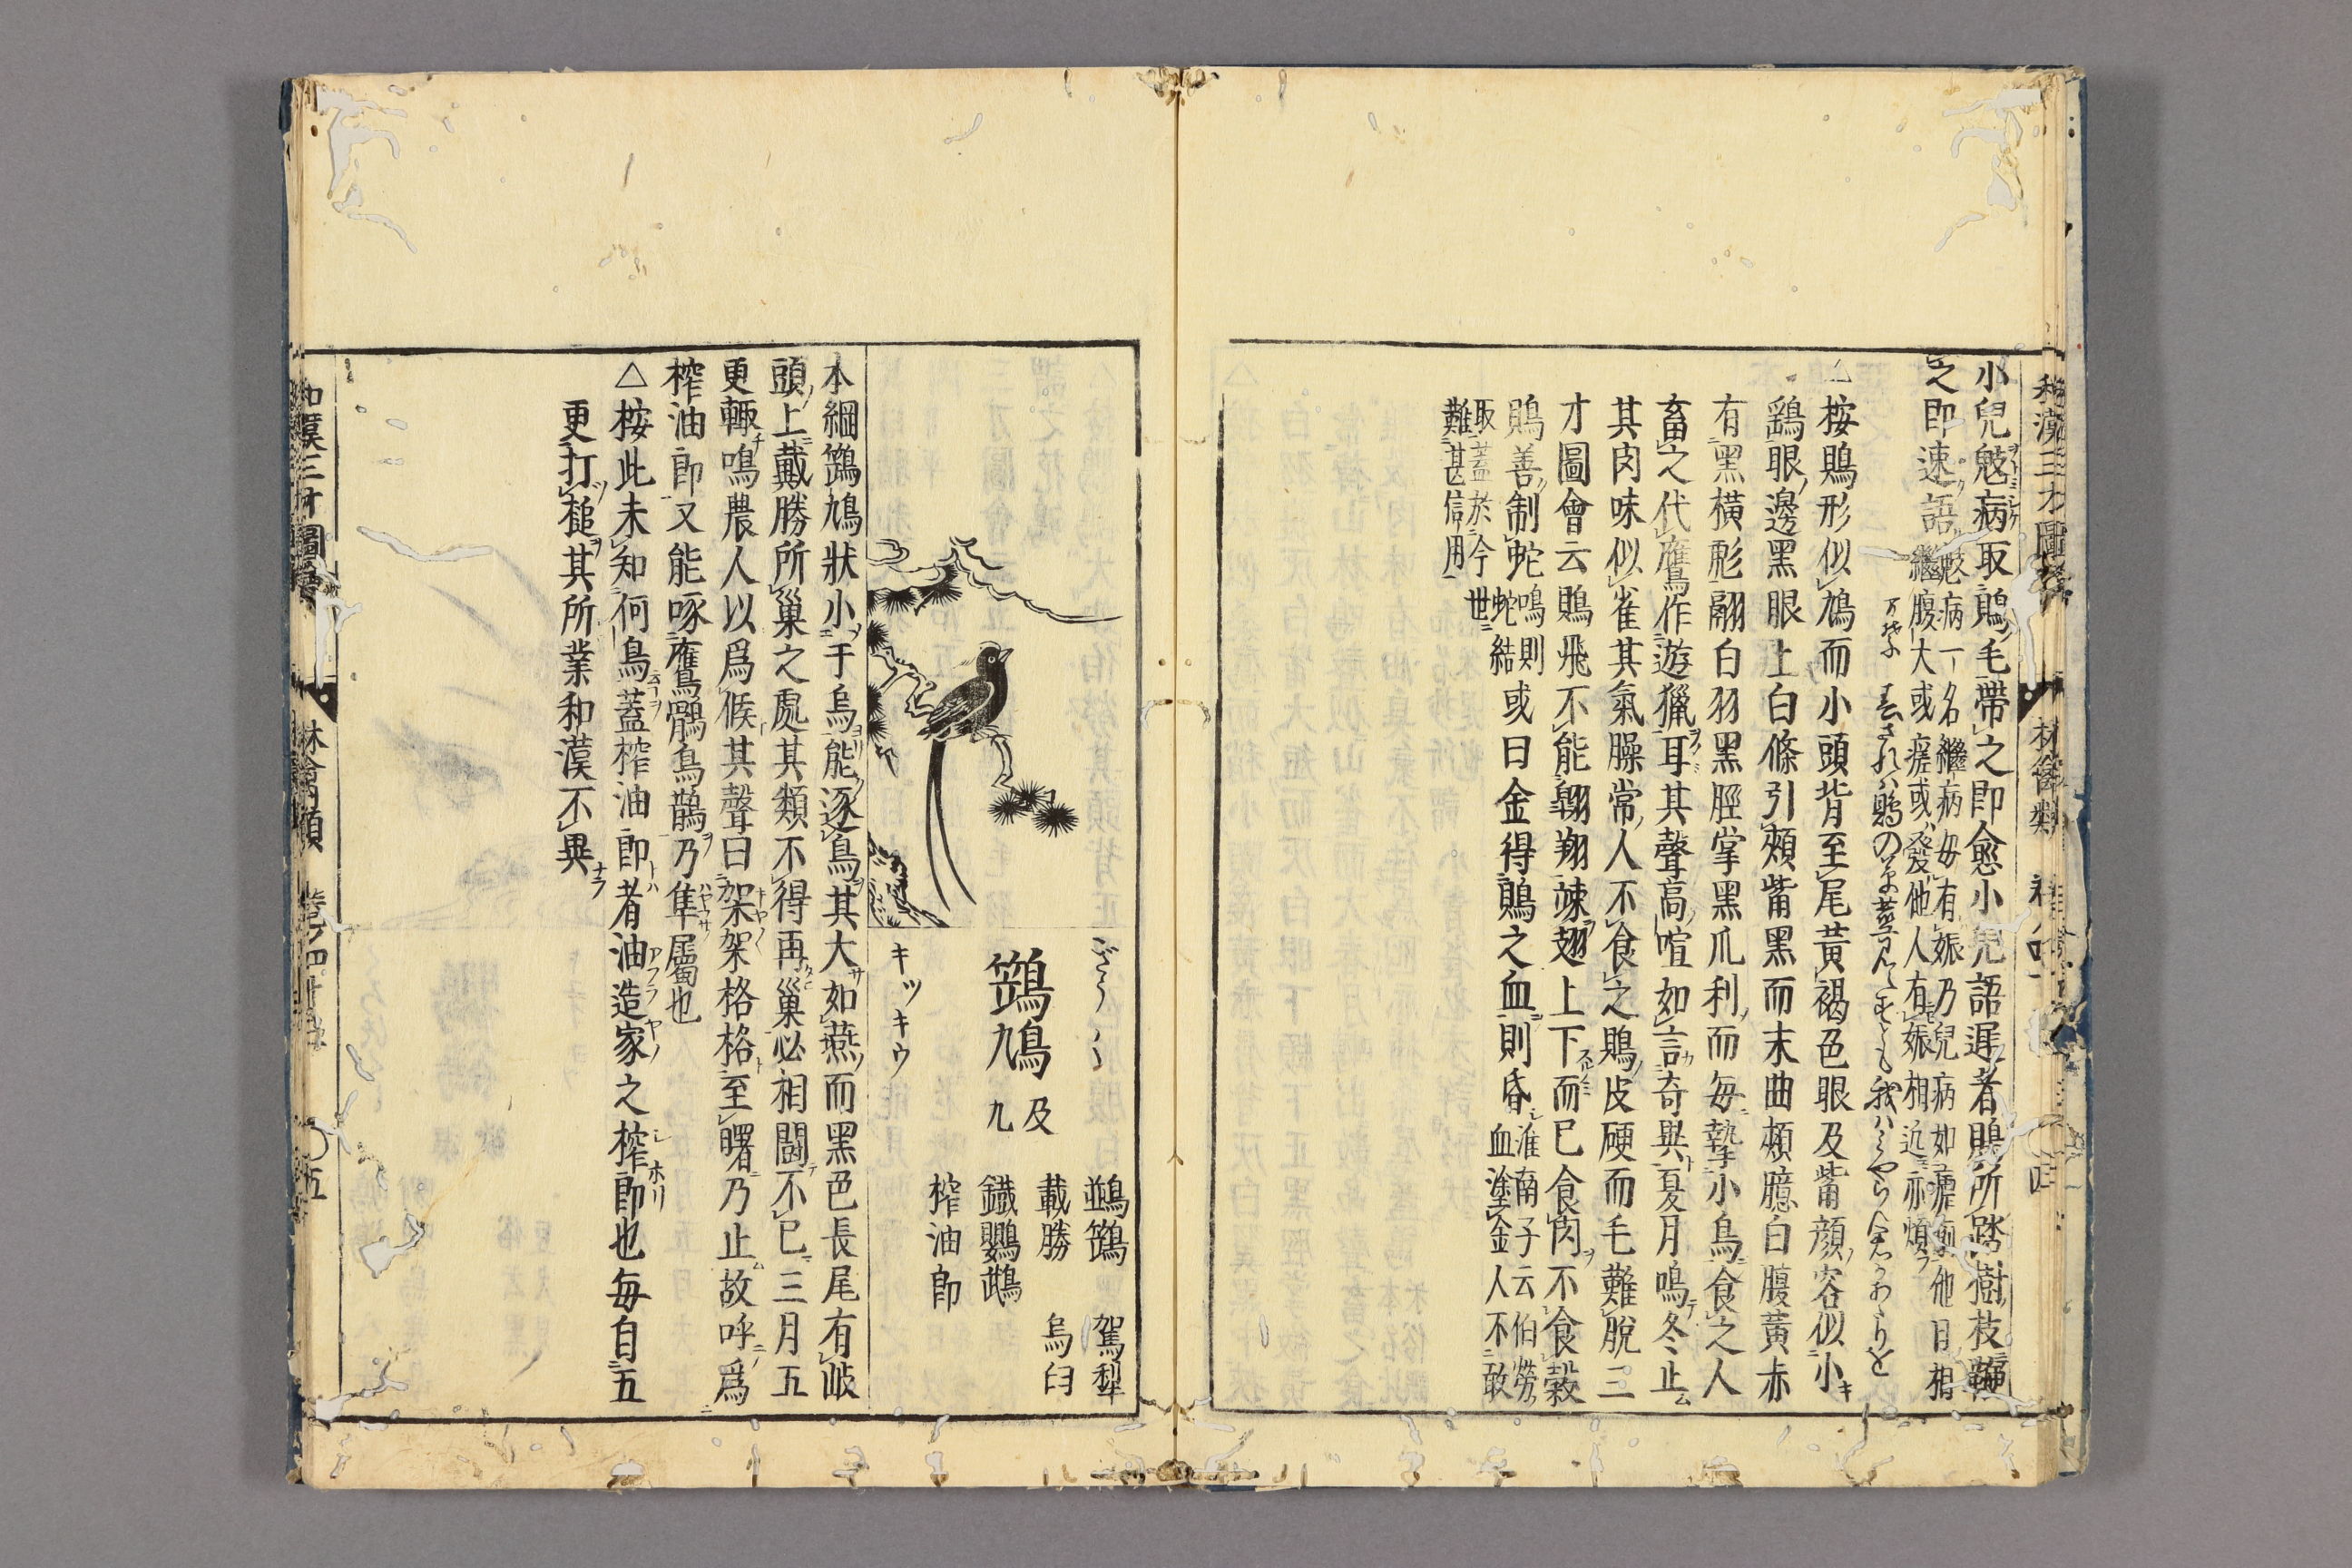 小兒鬾病取鵙毛帶之即愈小兒語遲者鵙所踏樹枝鞭
之即速語
鬾病一名繼病毎有娠乃兒病如瘧痢他日相
繼腹大或瘥或發他人有娠相近亦煩
△桉鵙形似鳩而小頭背至尾黃褐色眼及觜顏容似小
鷂眼邊黑眼上白條引頰觜黑而末曲頰臆白腹黃赤
有黑橫彪翮白羽黑脛掌黑爪利而毎摯小鳥食之人
畜之代鷹作遊獵耳其聲高喧如言奇異夏月鳴冬止
其肉味似雀其氣臊常人不食之鵙皮硬而毛難脫三
才圖會云鵙飛不能翺翔竦翅上下而已食肉不食穀
鵙善制蛇
鳴則
蛇結
或曰金得鵙之血則昏
淮南子云伯勞
血塗金人不敢
取蓋於今世
難甚信用
ごてう
キッキウ
鵧鳩
及
九
鵧鷑
駕犁
載勝
烏臼
鐵鸚鵡
榨油郎
本綱鵧鳩狀小于烏能逐烏其大如燕而黑色長尾有岐
頭上戴勝所巢之處其類不得再巢必相鬪不已三月五
更輙鳴農人以爲候其聲曰架架格格至曙乃止故呼爲
榨油郎又能啄鷹鶻烏鵲乃隼屬也
△桉此未知何鳥蓋榨油郎者油造家之榨郎也毎自五
更打槌其所業和漢不異
和漢三才圖會
林禽類
卷ノ四十三
〇五